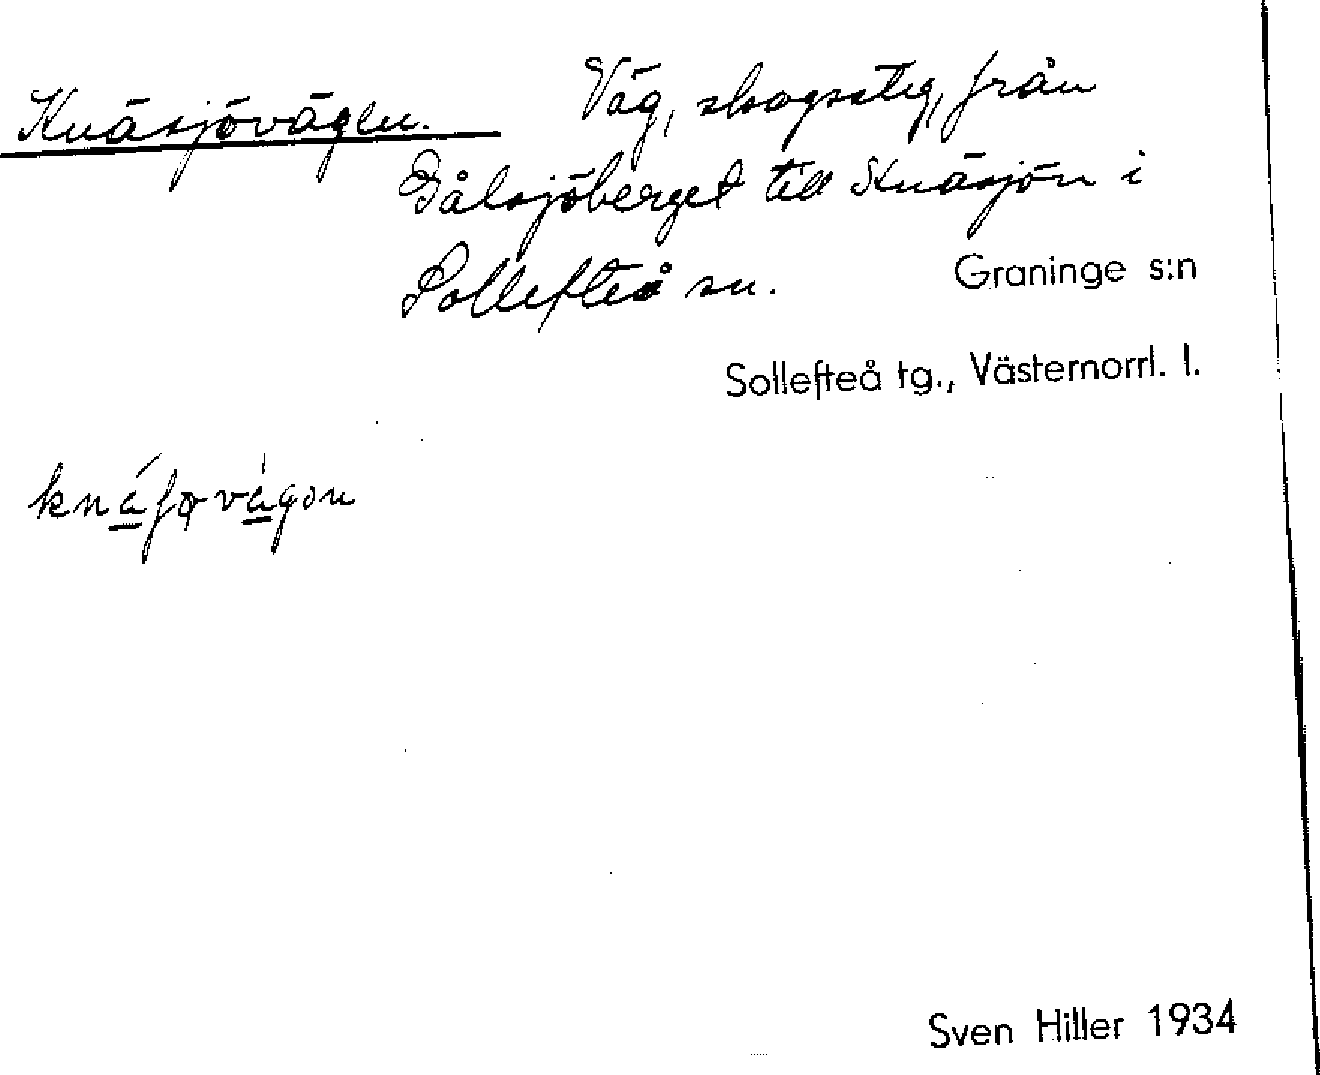 Knäsjövägen. Väg, skogsstig, från
Bålsjöberget till Knäsjön i
Sollefteå sn. Graninge s:n
Sollefteå tg., Västernorrl. l.
Sven Hiller 1934